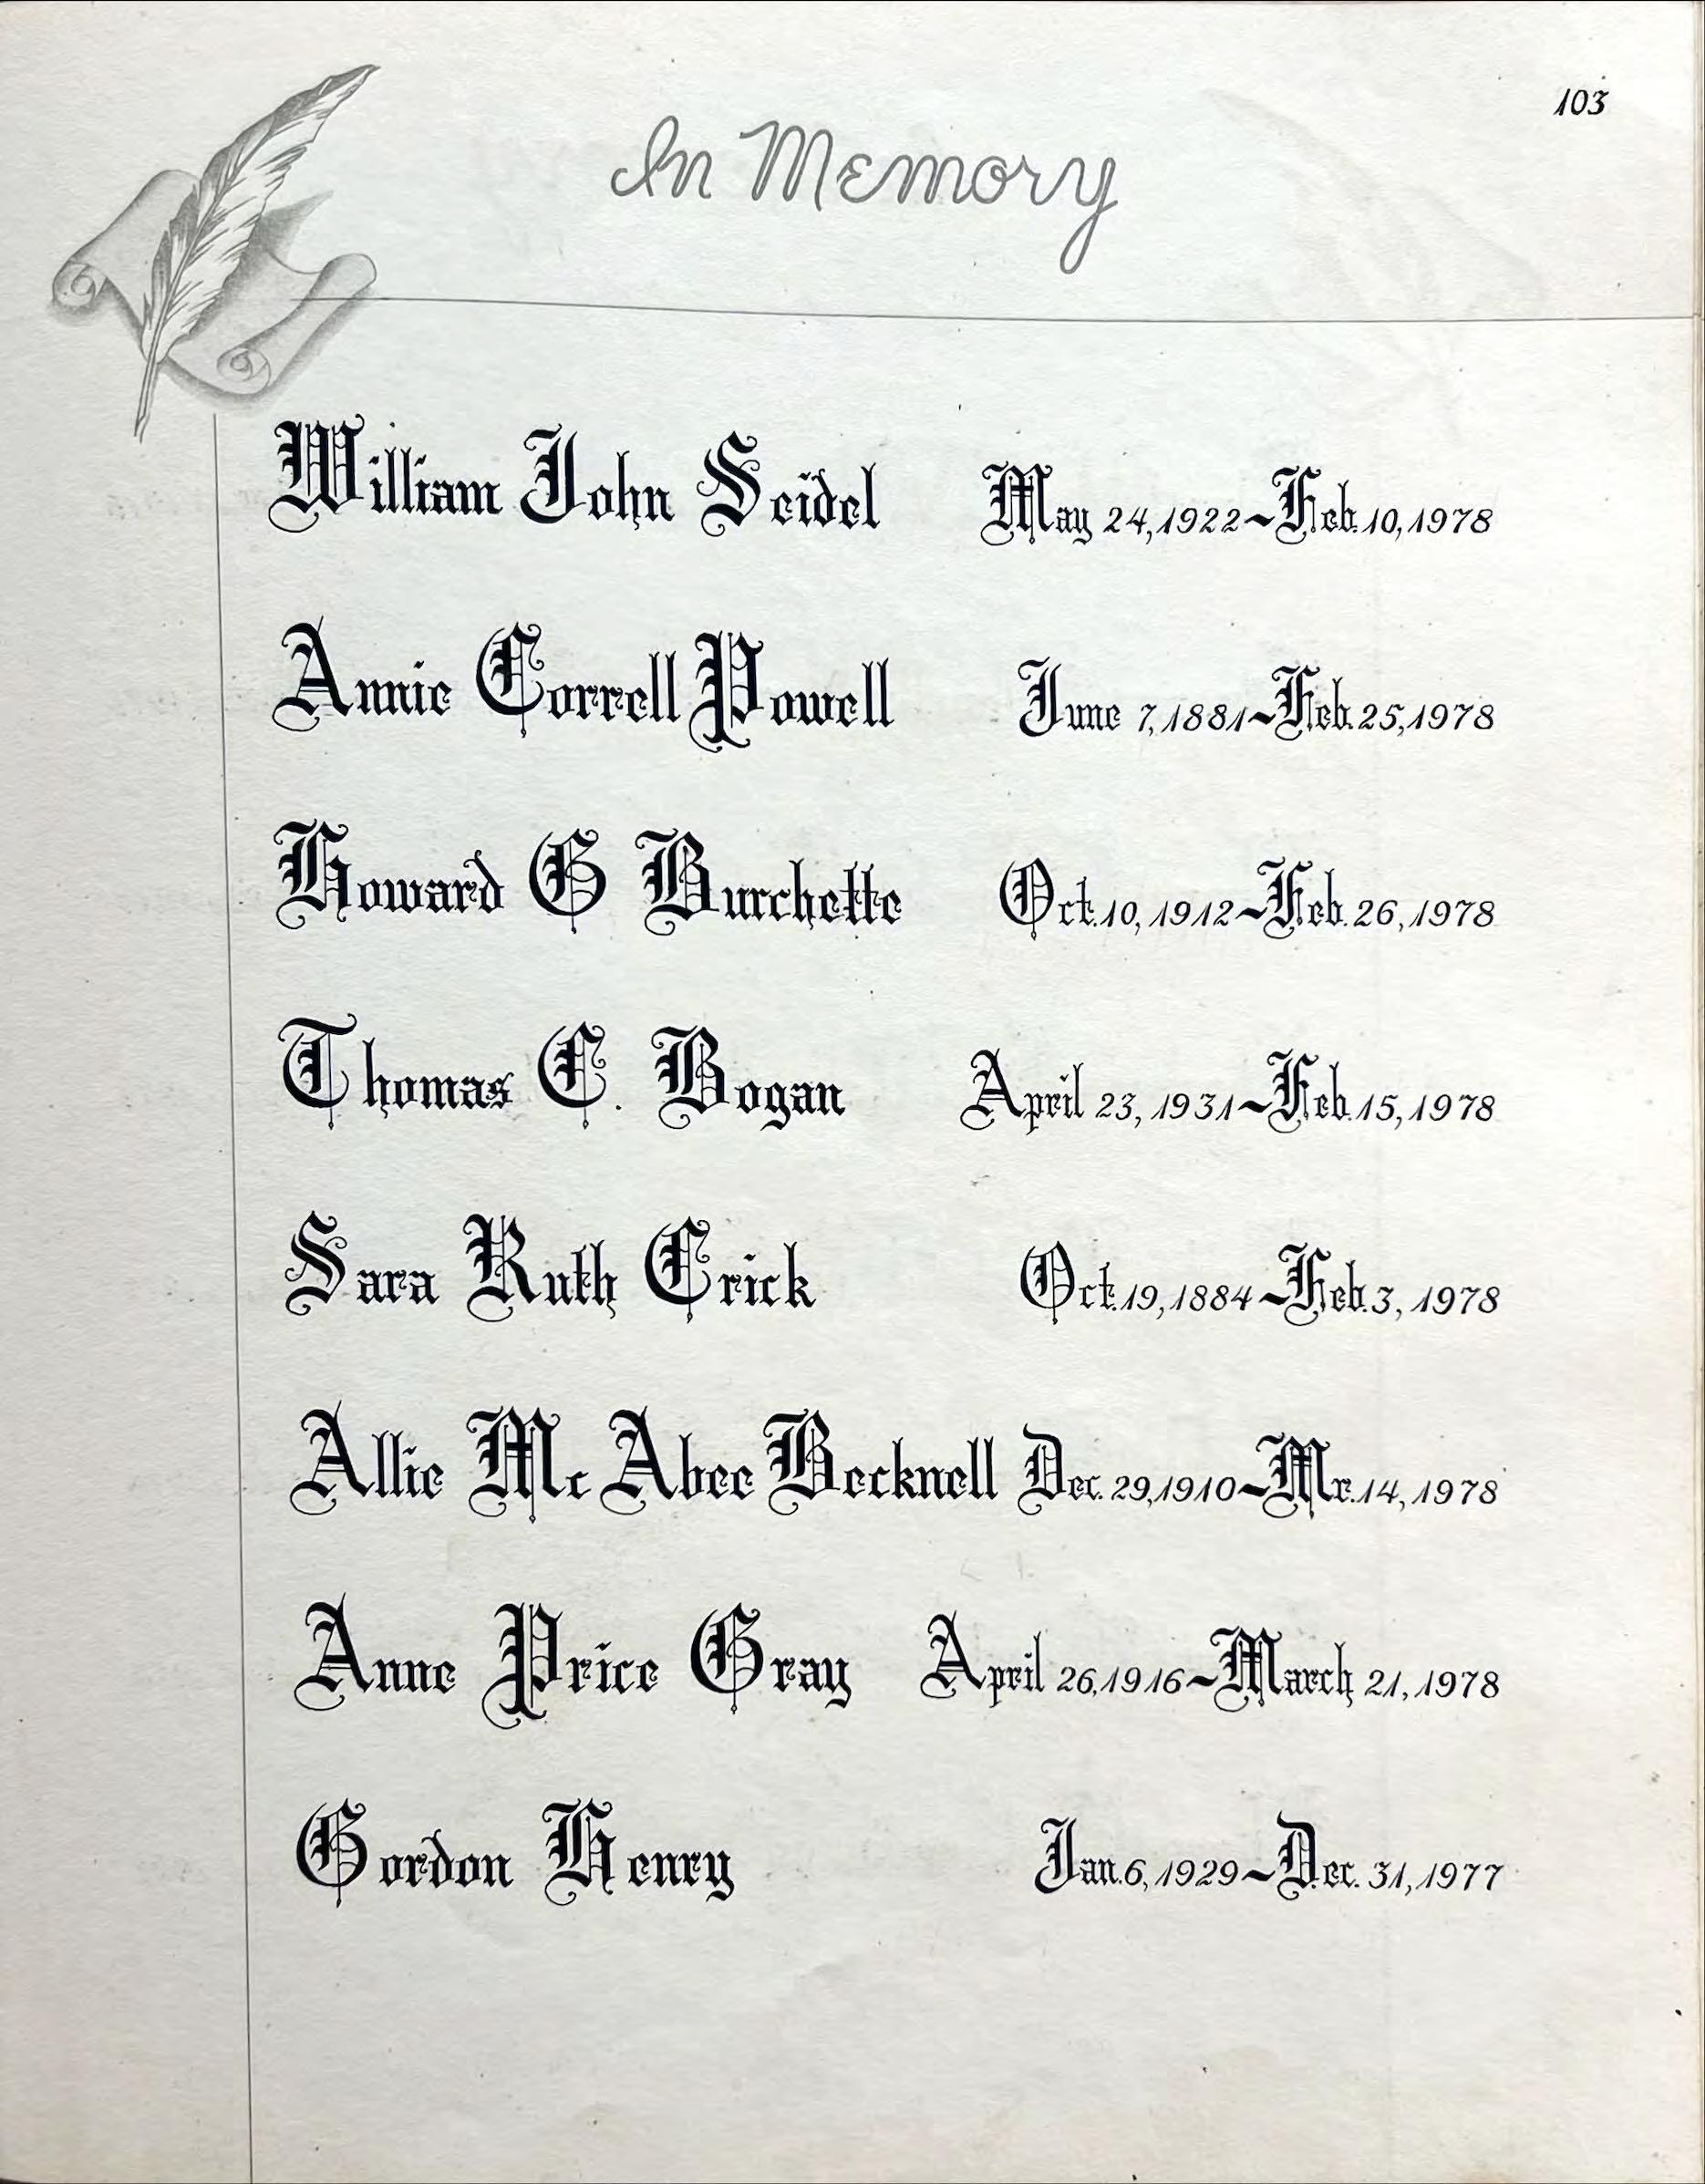 103
In Memory
William John Seidel May 24, 1922~Feb. 10, 1978
Annie Correll Powell June 7, 1881~Feb. 25, 1978
Howard G Burchette Oct. 10, 1912~Feb. 26, 1978
Thomas C. Bogan April 23, 1931~Feb. 15, 1978
Sara Ruth Crick Oct. 19, 1884~Feb. 3, 1978
Allie Mc Abee Becknell Dec. 29, 1910~Mr. 14, 1978
Anne Price Gray April 26, 1916~March 21, 1978
Gordon Henry Jan. 6, 1929~Dec. 31, 1977